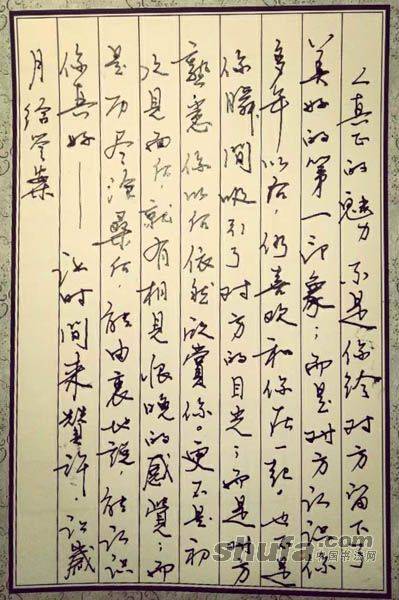 人真正的魅力不是你给对方留下了
美好的第一印象；而是对方认识你
多年以后，仍喜欢和你在一起。也不是
你瞬间吸引了对方的目光；而是对方
熟悉你以后依然欣赏你。更不是初
次见面后，就有相见恨晚的感觉；而
是历尽沧桑后，能由衷地说，能认识
你真好——让时间来赞许，让岁
月给答案
shufa.com
中国书法网